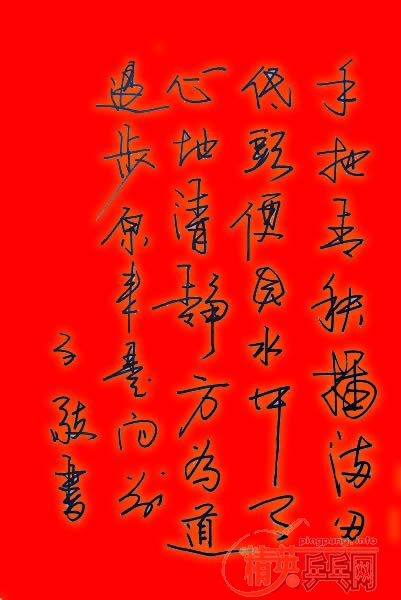 手把青秧插满田
低頭便見水中天
心地清静方为道
退步原来是向前
書
pingpung.info
精英乒乓网